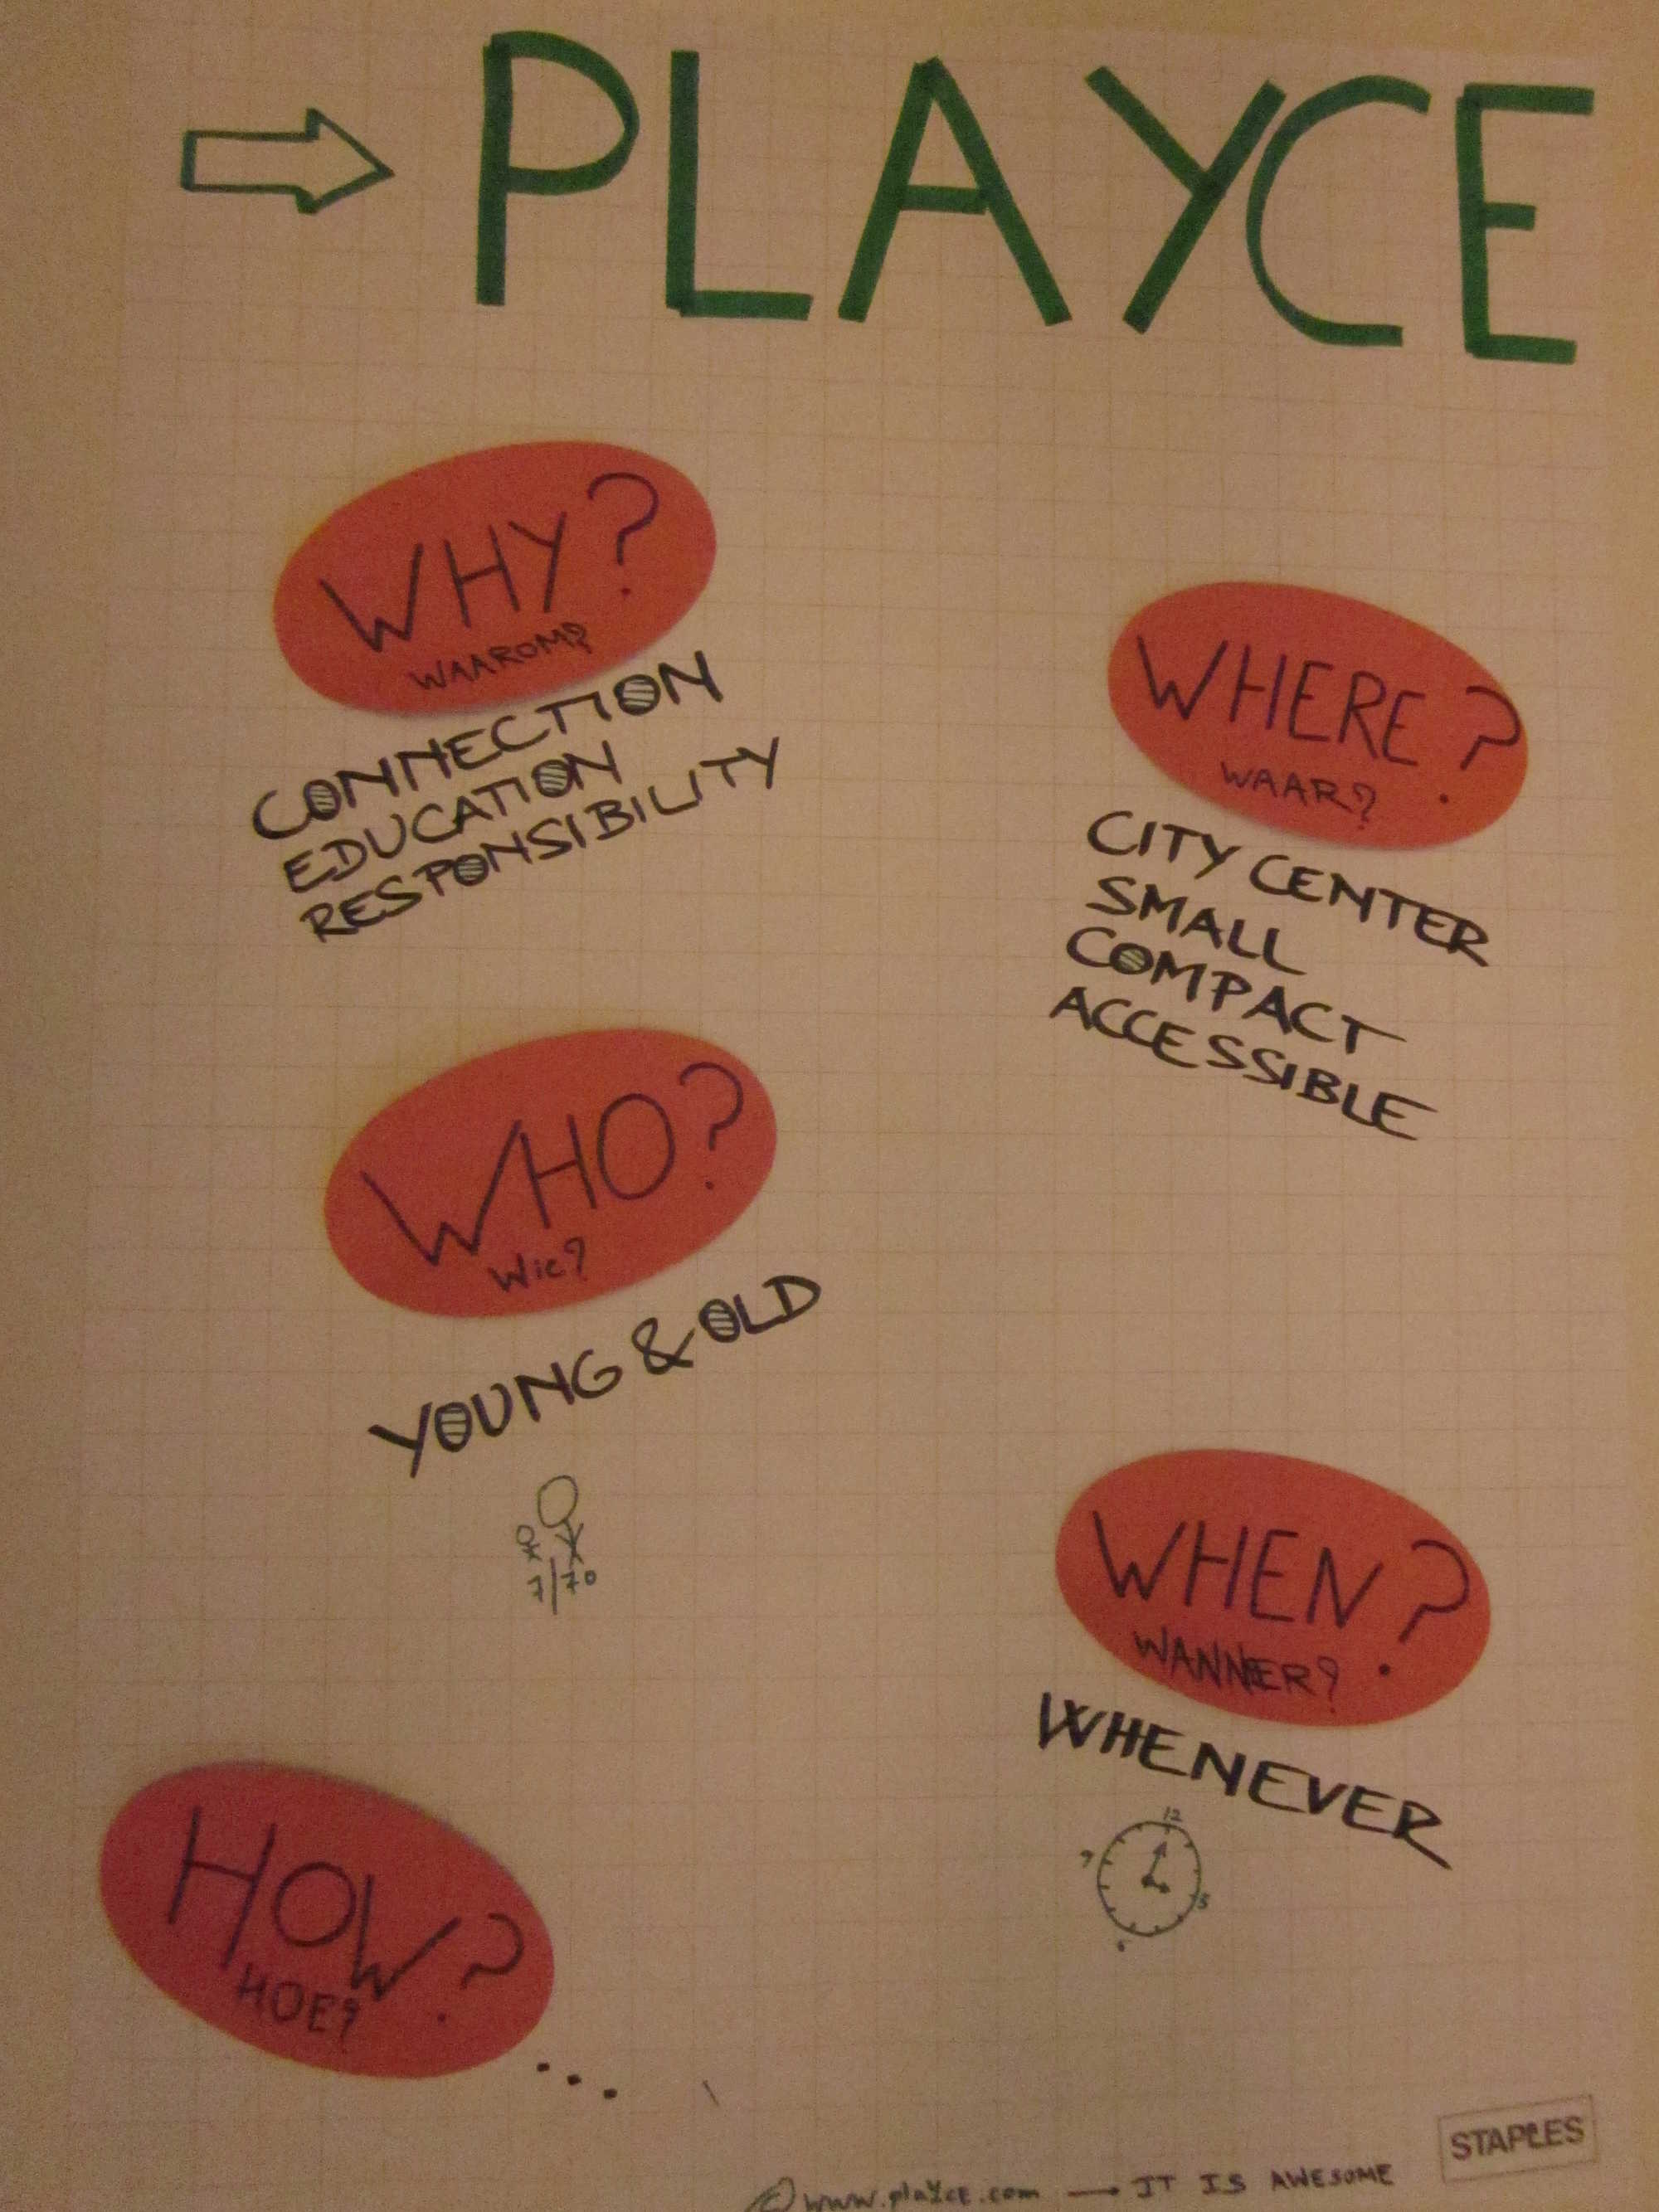 PLAYCE
WHY?
WAAROM?
CONNECTION
EDUCATION
RESPONSIBILITY
WHERE?
WAAR?
CITY CENTER
SMALL
COMPACT
ACCESSIBLE
WHO?
Wie?
YOUNG & OLD
7/70
WHEN?
WANNEER?
WHENEVER
12
HOW?
HOE?
...
STAPLES
© www.playce.com → IT IS AWESOME